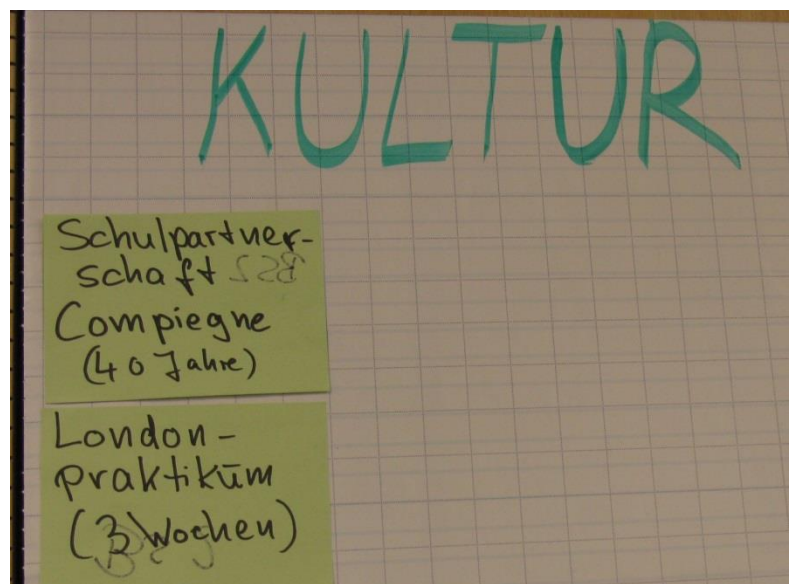 KULTUR
Schulpartner-
schaft
Compiegne
(40 Jahre)
London-
praktikum
(3 Wochen)